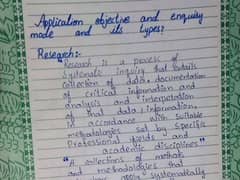 Application objective and enquiry
mode and its types?
Research:-
"Research is a process of
systematic inquiry that entails
collection of data, documentation
of critical information and
analysis and interpretation
of that data / information,
in accordance with suitable
methodologies set by specific
Professional fields and
academic disciplines"
"A collections of methods
and methodologies that
apply systematically